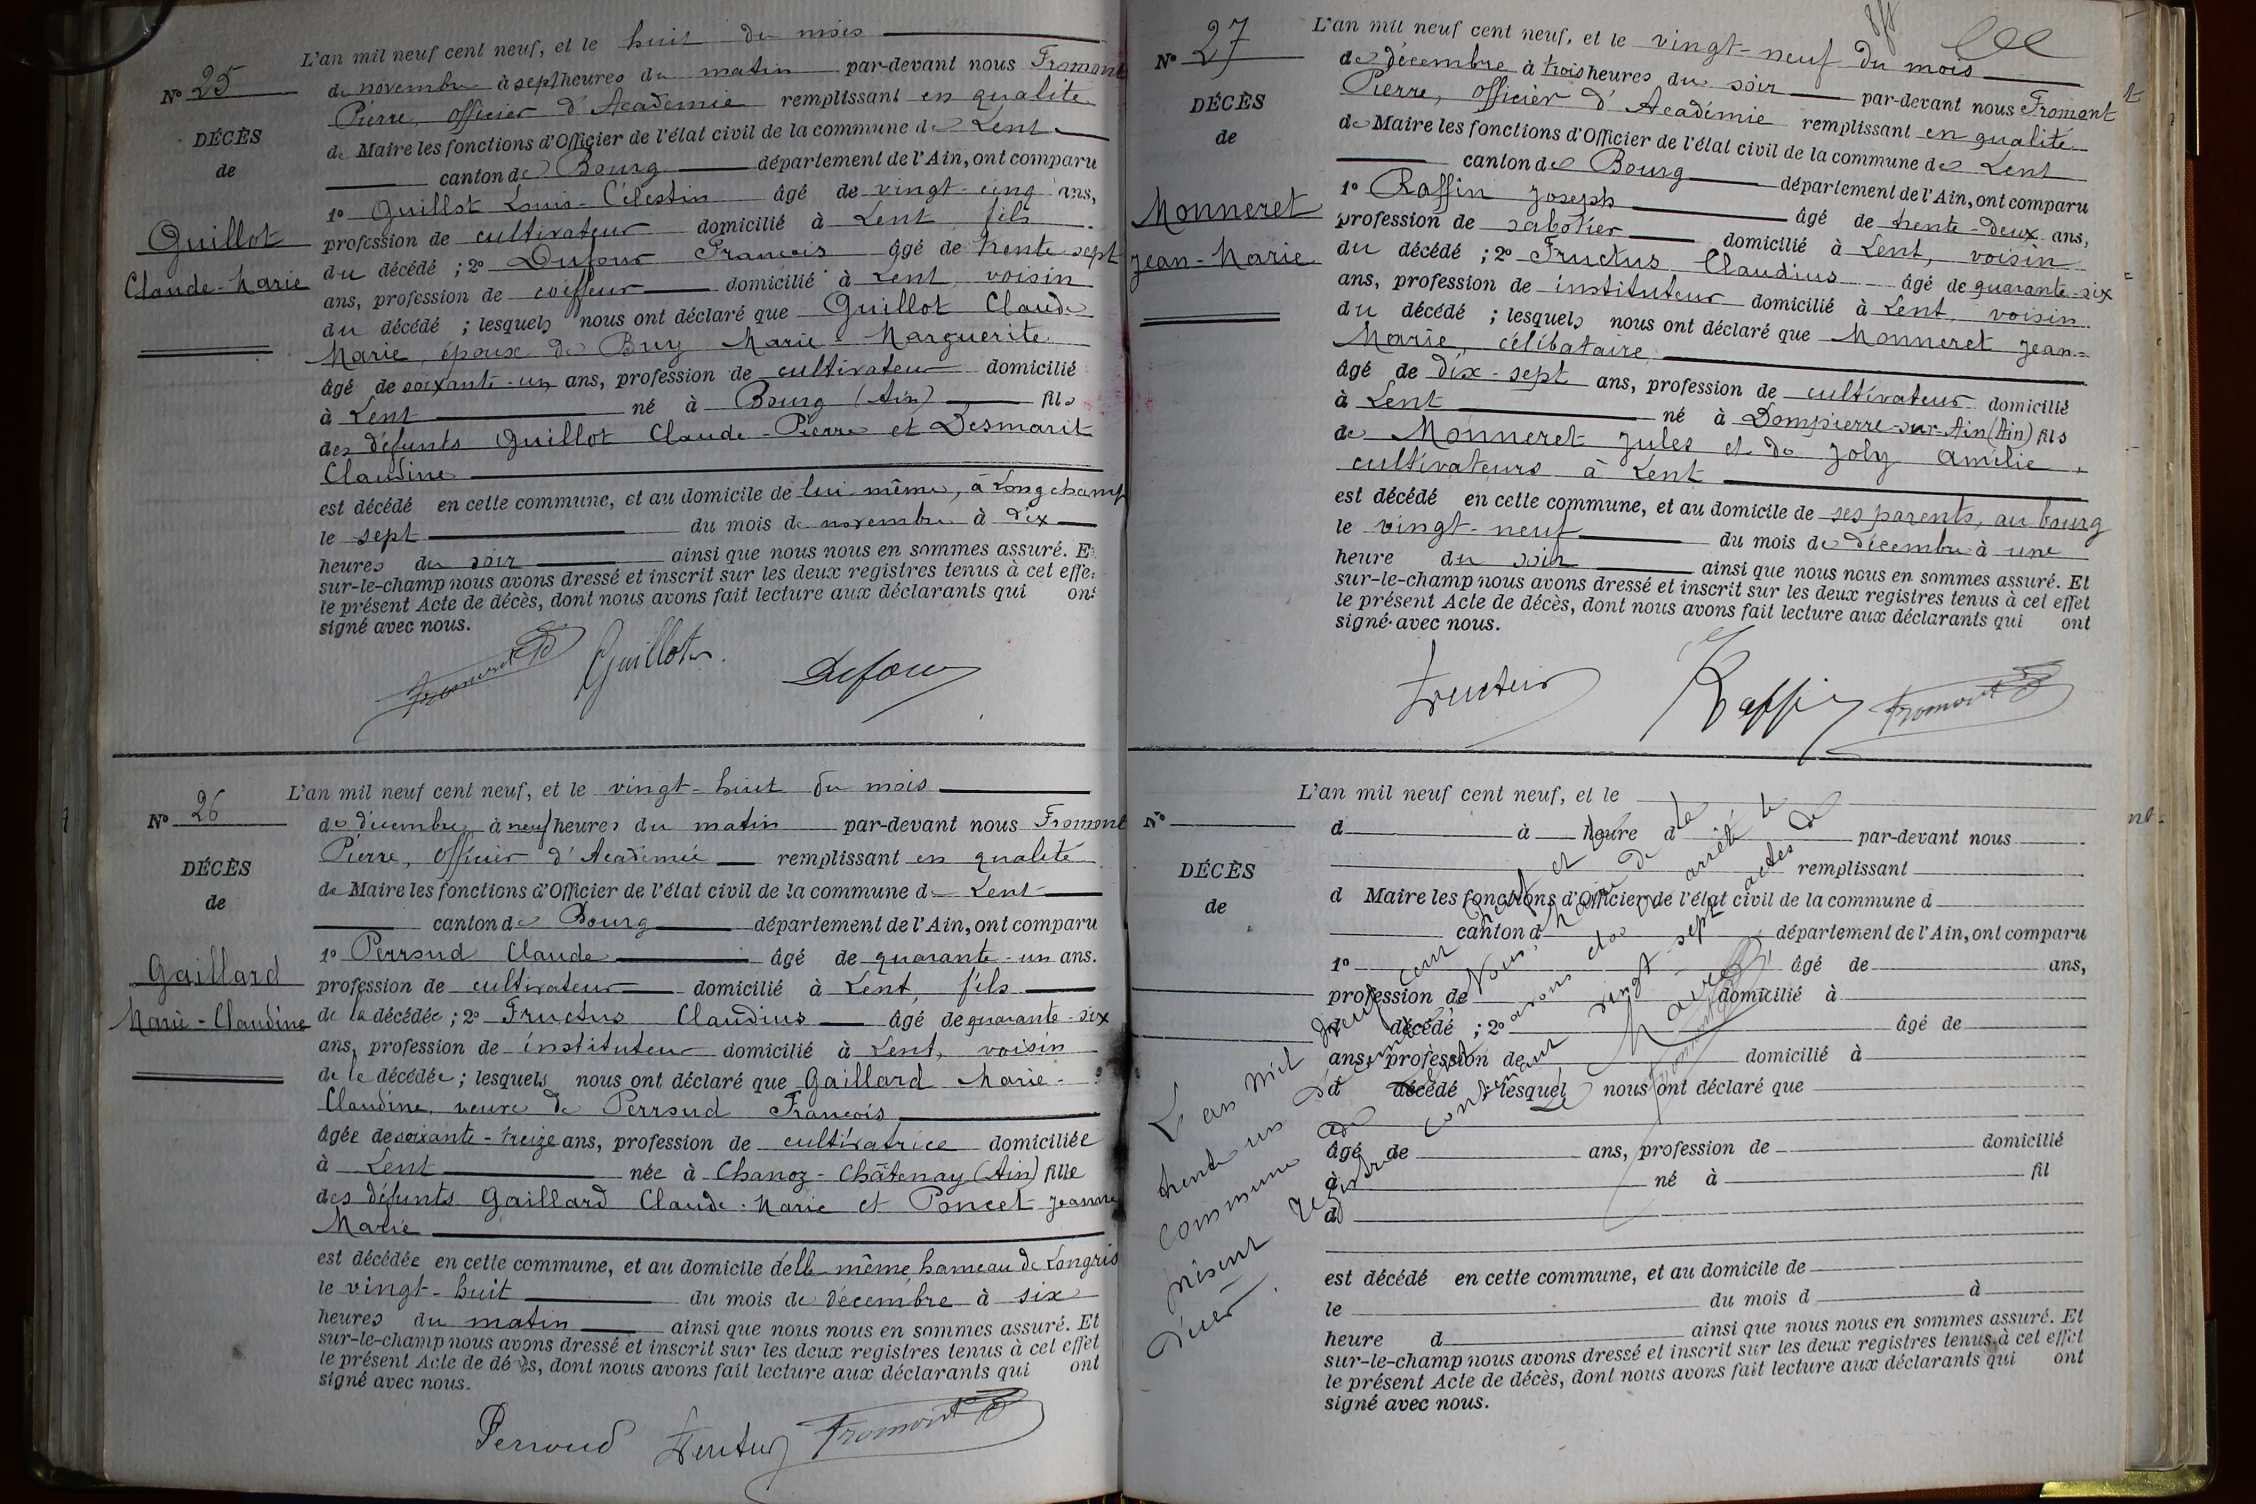 L'an mil neuf cent neuf, et le huit du mois
N° 25
de novembre à sept heures du matin par-devant nous Fromont
Pierre, officier d'Académie remplissant en qualité
DÉCÈS
de Maire les fonctions d'Officier de l'état civil de la commune de Lent
de
canton de Bourg département de l'Ain, ont comparu
1° Guillot Louis-Célestin âgé de vingt-cinq ans,
Guillot
profession de cultivateur domicilié à Lent, fils
Claude-Marie
du décédé ; 2° Dufour François âgé de trente-sept
ans, profession de coiffeur domicilié à Lent, voisin
du décédé ; lesquels nous ont déclaré que Guillot Claude
Marie, époux de Buy Marie-Marguerite
âgé de soixante-un ans, profession de cultivateur domicilié
à Lent né à Bourg (Ain) fils
des défunts Guillot Claude-Pierre et Desmarit
Claudine
est décédé en cette commune, et au domicile de lui-même, à Longchamp
le sept du mois de novembre à dix
heures du soir ainsi que nous nous en sommes assuré. E
sur-le-champ nous avons dressé et inscrit sur les deux registres tenus à cet effe
le présent Acte de décès, dont nous avons fait lecture aux déclarants qui ont
signé avec nous.
Fromont Guillot Dufour
L'an mil neuf cent neuf, et le vingt-huit du mois
N° 26
de décembre à neuf heures du matin par-devant nous Fromont
Pierre, officier d'Académie remplissant en qualité
DÉCÈS
de Maire les fonctions d'Officier de l'état civil de la commune de Lent
de
canton de Bourg département de l'Ain, ont comparu
1° Perroud Claude âgé de quarante-un ans.
Gaillard
profession de cultivateur domicilié à Lent, fils
Marie-Claudine
de la décédée ; 2° Fructus Claudius âgé de quarante-six
ans, profession de instituteur domicilié à Lent, voisin
de la décédée ; lesquels nous ont déclaré que Gaillard Marie-
Claudine, veuve de Perroud François
âgée de soixante-treize ans, profession de cultivatrice domiciliée
à Lent née à Chanoz-Châtenay (Ain) fille
des défunts Gaillard Claude-Marie et Poncet Jeanne
Marie
est décédée en cette commune, et au domicile d'elle-même, hameau de Longris
le vingt-huit du mois de décembre à six
heures du matin ainsi que nous nous en sommes assuré. Et
sur-le-champ nous avons dressé et inscrit sur les deux registres tenus à cet effet
le présent Acte de décès, dont nous avons fait lecture aux déclarants qui ont
signé avec nous.
Perroud Fructus Fromont
L'an mil neuf cent neuf, et le vingt-neuf du mois
N° 27
de décembre à trois heures du soir par-devant nous Fromont
Pierre, officier d'Académie remplissant en qualité
DÉCÈS
de Maire les fonctions d'Officier de l'état civil de la commune de Lent
de
canton de Bourg département de l'Ain, ont comparu
1° Raffin Joseph âgé de trente-deux ans,
Monneret
profession de sabotier domicilié à Lent, voisin
Jean-Marie
du décédé ; 2° Fructus Claudius âgé de quarante-six
ans, profession de instituteur domicilié à Lent, voisin
du décédé ; lesquels nous ont déclaré que Monneret Jean-
Marie, célibataire,
âgé de dix-sept ans, profession de cultivateur domicilié
à Lent né à Dompierre-sur-Ain (Ain) fils
de Monneret Jules et de Joly Amélie,
cultivateurs à Lent
est décédé en cette commune, et au domicile de ses parents, au bourg
le vingt-neuf du mois de décembre à une
heure du soir ainsi que nous nous en sommes assuré. Et
sur-le-champ nous avons dressé et inscrit sur les deux registres tenus à cet effet
le présent Acte de décès, dont nous avons fait lecture aux déclarants qui ont
signé avec nous.
Fructus Raffin Fromont
L'an mil neuf cent neuf, et le
N°
d à heure d par-devant nous
remplissant
DÉCÈS
d Maire les fonctions d'Officier de l'état civil de la commune d
de
canton d département de l'Ain, ont comparu
1° âgé de ans,
profession de domicilié à
d décédé ; 2° âgé de
ans, profession de domicilié à
d décédé ; lesquel nous ont déclaré que
âgé de ans, profession de domicilié
à né à fil
d
est décédé en cette commune, et au domicile de
le du mois d à
heure d ainsi que nous nous en sommes assuré. Et
sur-le-champ nous avons dressé et inscrit sur les deux registres tenus à cet effet
le présent Acte de décès, dont nous avons fait lecture aux déclarants qui ont
signé avec nous.
L'an mil neuf cent neuf et le
trente un décembre, Nous, Maire de la
commune de Lent avons clos et arrêté le
présent registre contenant vingt-sept actes de
décès.
Le Maire,
Fromont